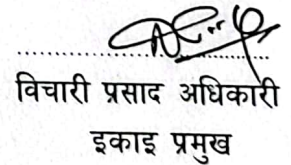 विचारी प्रसाद अधिकारी
इकाइ प्रमुख